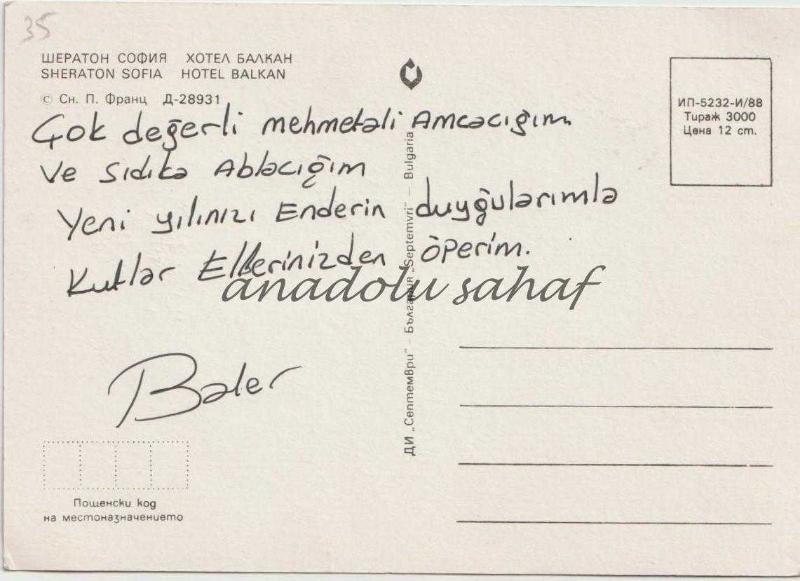 35
ШЕРАТОН СОФИЯ ХОТЕЛ БАЛКАН
SHERATON SOFIA HOTEL BALKAN
© Сн. П. Франц Д-28931
Çok değerli mehmetali Amcacığım
Ve Sıdıka Ablacığım
Yeni yılınızı Enderin duyğularımla
Kutlar Ellerinizden öperim.
Baler
anadolu sahaf
ИП-5232-И/88
Тираж 3000
Цена 12 ст.
ДИ „Септември" – България „Septemvri" – Bulgaria
Пощенски код
на местоназначението